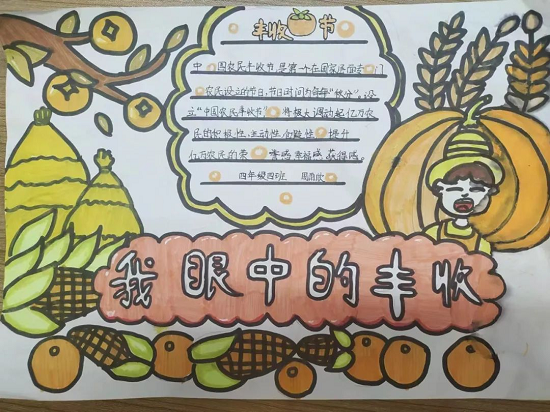 丰收节
中国农民丰收节,是第一个在国家层面专门
农民设立的节日,节日时间为每年“秋分”。设
立“中国农民丰收节”将极大调动起亿万农
民的积极性、主动性、创造性 提升
亿万农民的荣 幸福感、获得感。
四年级四班
我眼中的丰收